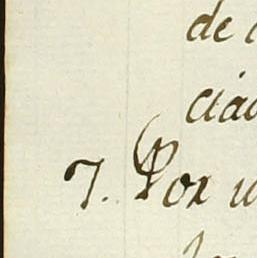 de
cia
7. Por u